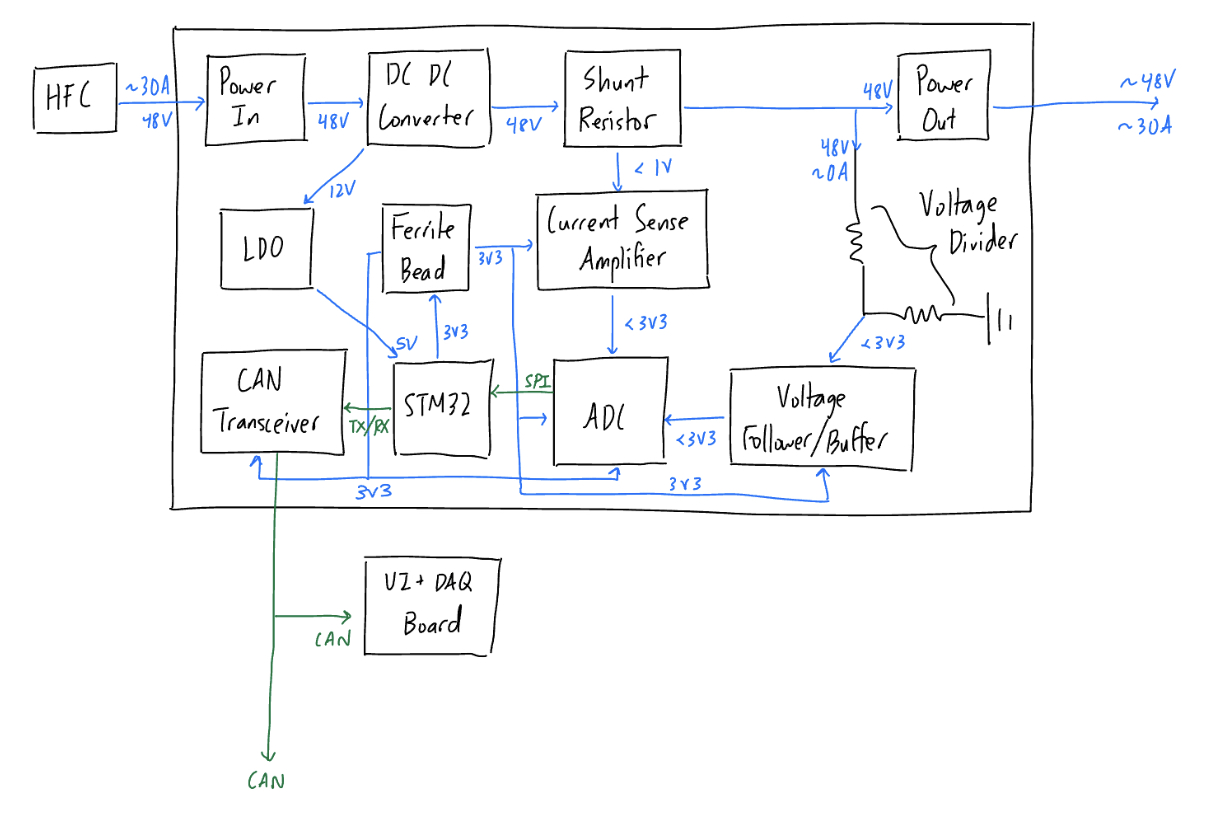 HFC
~30A
48V
Power
In
48V
DC DC
Converter
48V
Shunt
Resistor
48V
Power
Out
~48V
~30A
12V
< 1V
48V
~0A
Voltage
Divider
LDO
Ferrite
Bead
3V3
Current Sense
Amplifier
5V
3V3
<3V3
<3V3
CAN
Transceiver
TX/RX
STM32
SPI
ADC
<3V3
Voltage
Follower/Buffer
3V3
3V3
UI + DAQ
Board
CAN
CAN